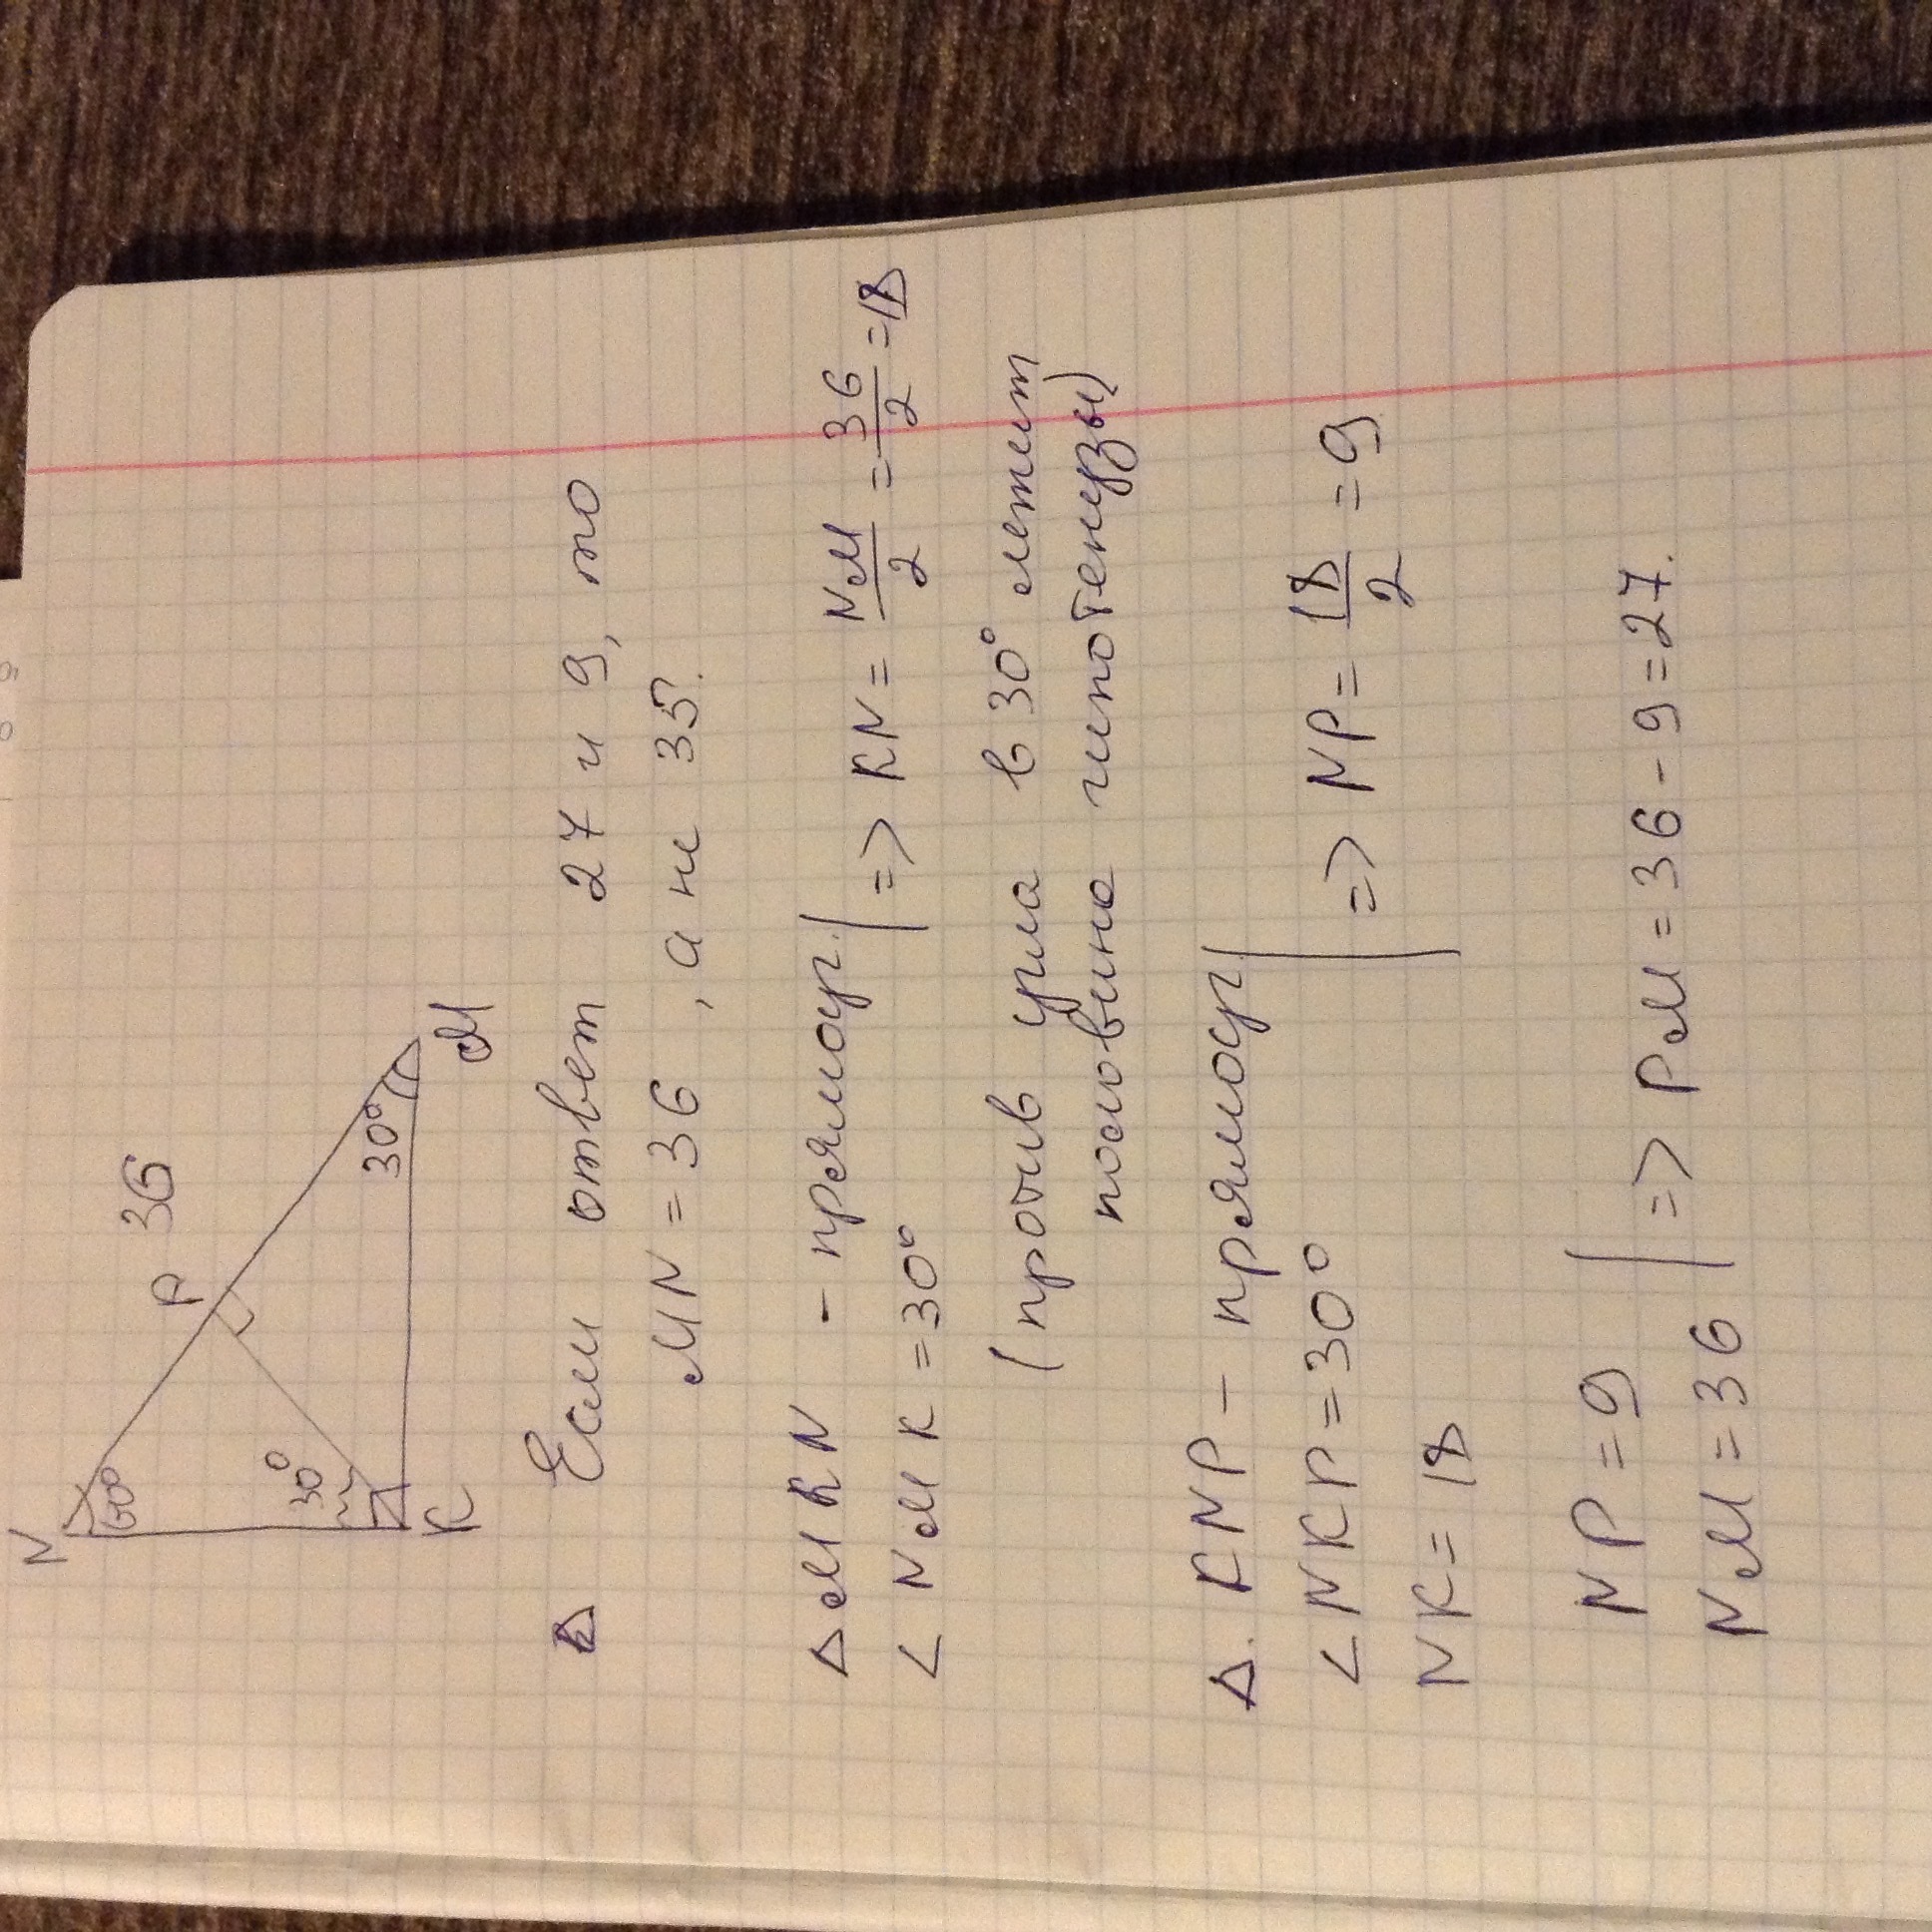 N
60°
P
36
30°
30°
K
М
Если ответ 27 и 9, то
MN = 36, а не 35.
Δ MKN - прямоуг.
∠ NMK = 30°
=> KN = NM/2 = 36/2 = 18
(против угла в 30° лежит
половина гипотенузы)
Δ. KNP - прямоуг.
∠ NKP = 30°
NK = 18
=> NP = 18/2 = 9
NP = 9
NM = 36
=> PM = 36 - 9 = 27.